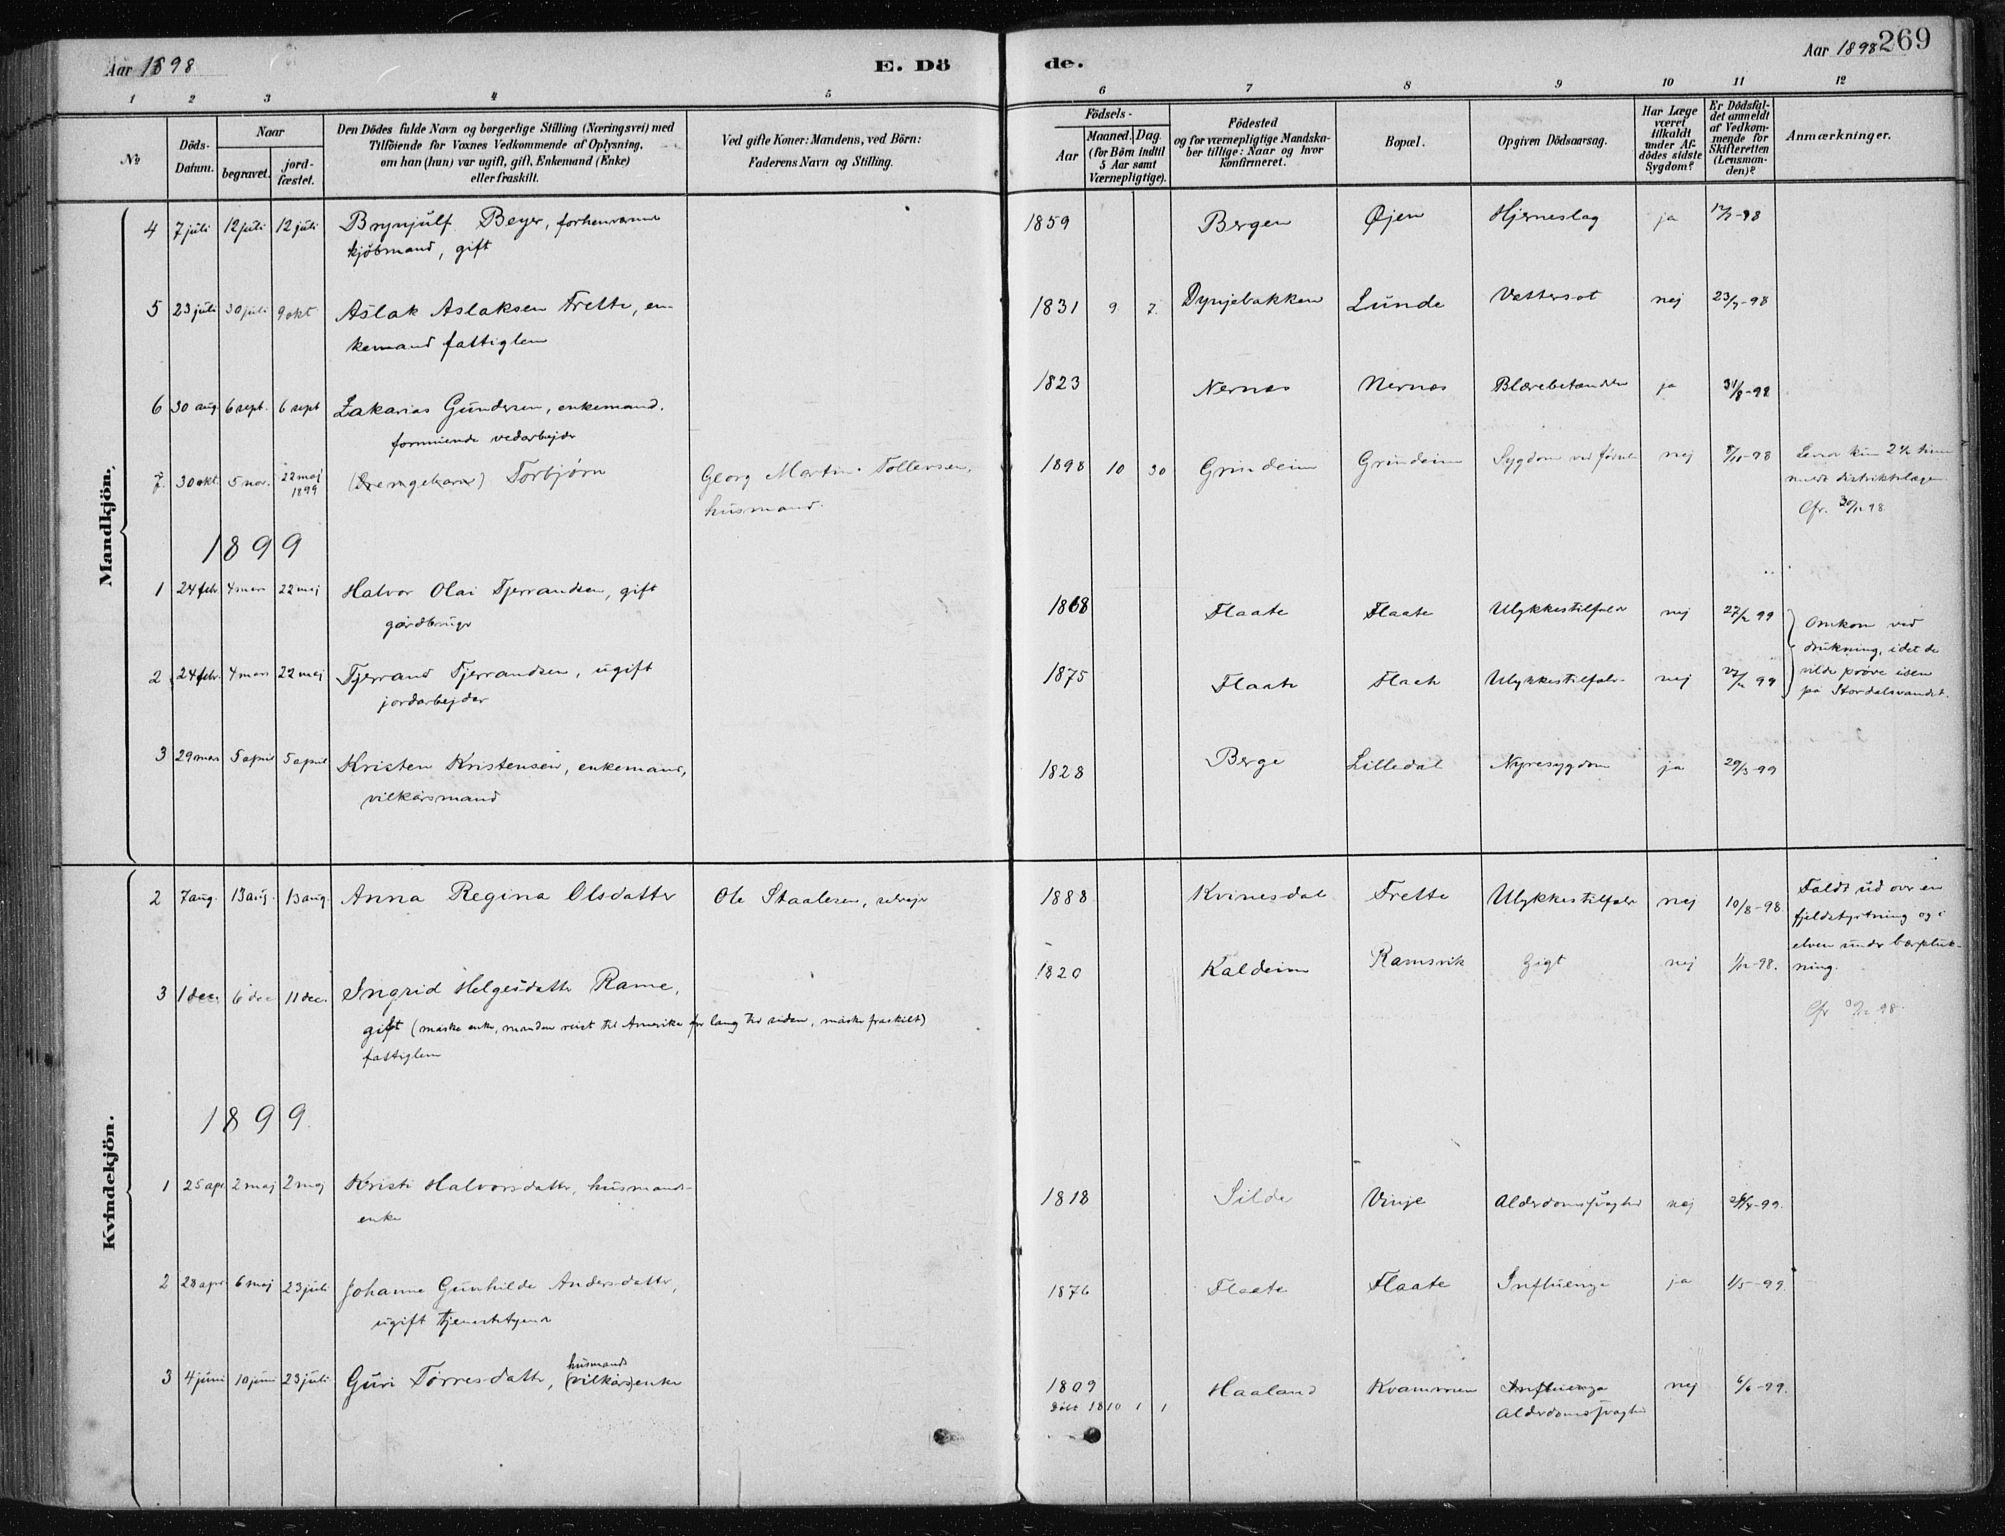 Aar 1898
E. Dö
de.
Aar 1898
269
1 2 3 4 5 6 7 8 9 10 11 12
№
Döds-
Datum.
Naar
begravet.
jord-
fæstet.
Den Dödes fulde Navn og borgerlige Stilling (Næringsvei) med
Tilföiende for Voxnes Vedkommende af Oplysning,
om han (hun) var ugift, gift, Enkemand (Enke)
eller fraskilt.
Ved gifte Koner: Mandens, ved Börn:
Faderens Navn og Stilling.
Födsels-
Aar
Maaned. Dag.
(for Börn indtil
5 Aar samt
Værnepligtige).
Födested
og for værnepligtige Mandska-
ber tillige: Naar og hvor
Konfirmeret.
Bopæl.
Opgiven Dödsaarsag.
Har Læge
været
tilkaldt
under Af-
dödes sidste
Sygdom?
Er Dödsfal-
det anmeldt
af Vedkom-
mende for
Skifteretten
(Lensman-
den)?
Anmærkninger.
Mandkjön.
4 7 juli 12 juli 12 juli Brynjulf Beyer, forhenværende 1859 Bergen Øjen Hjerneslag ja 12/7-98
kjöbmand, gift
5 23 juli 30 juli 9 okt Aslak Aslaksen Frette, en- 1831 9 7. Dynjebakken Lunde Vattersot nej 23/7-98
kemand fattiglem
6 30 aug 6 sept. 6 sept Zakarias Gundersen, enkemand. 1823 Nernes Nernes Blærebetændelse ja 31/8-98
formuende vedarbejder
7 30 okt. 5 nov. 22 maj 1899 (Drengebarn) Torbjørn Georg Martin Tollevsen, 1898 10 30 Grindeim Grindeim Sygdom ved fødsel nej 8/11-98 Levde kun 2 1/2 time
husmand. meldt distriktslægen
Cfr. 30/11 98
1899
1 24 febr 4 mars 22 maj Halvor Olai Tjerrandsen, gift 1868 Flaate Flaate Ulykkestilfælde nej 27/2 99 Omkom ved
gårdbruger drukning, idet de
2 24 febr. 4 mars 22 maj Tjerrand Tjerrandsen, ugift 1875 Flaate Flaate Ulykkestilfælde nej 27/2 99 vilde prøve isen
jordarbejder på Stordalsvandet.
3 29 mars 5 april 5 april Kristen Kristensen, enkemand, 1828 Berge Lilledal Nyresygdom ja 29/3-99
vilkårsmand
Kvindekjön.
2 7 aug. 13 aug. 13 aug. Anna Regina Olsdatter Ole Staalesen, selvejer 1888 Kvinesdal Frette Ulykkestilfælde nej 10/8-98. Faldt ud over en
fjeldstyrtning og i
elven under bærpluk-
ning.
3 1 dec. 6 dec 11 dec. Ingrid Helgesdatter Rame, 1820 Kaldeim Ramsvik Gigt nej 1/12-98.
gift (måske enke, manden reist til Amerika for lang tid siden, måske fraskilt)
fattiglem
1899.
1 25 apr 2 maj 2 maj Kristi Halvorsdatter, husmands- 1818 Silde Vinje Alderdomssvaghed nej 26/4-99.
enke
2 28 apr. 6 maj 23 juli Johanne Gunhilde Andersdatter, 1876 Flaate Flaate Influenza ja 1/5-99.
ugift tjenestetyende
husmands
3 4 juni 10 juni 23 juli Guri Tørresdatter, (vilkårs)enke 1809 Haaland Kvammen Influenza nej 6/6-99.
døbt 1810 1 1 Alderdomssvaghed